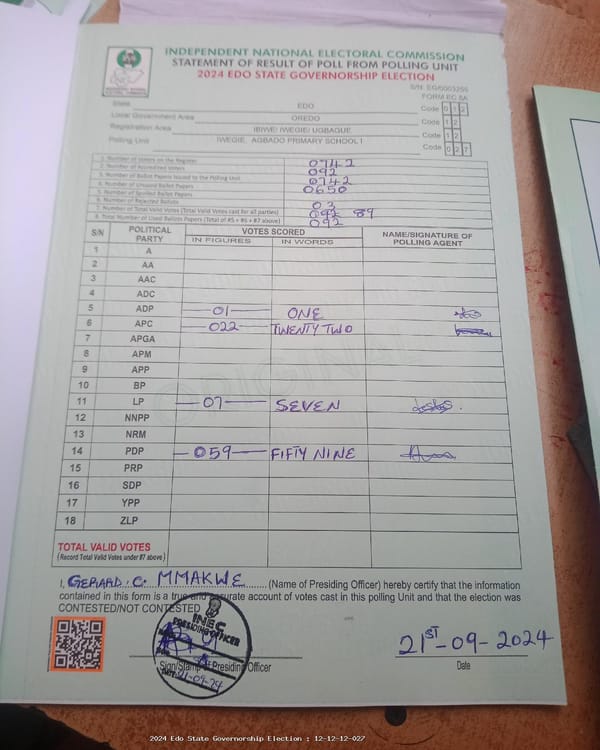 INDEPENDENT NATIONAL ELECTORAL COMMISSION
STATEMENT OF RESULT OF POLL FROM POLLING UNIT
2024 EDO STATE GOVERNORSHIP ELECTION
FORM EC 8A
State EDO Code 0 1 2
Local Government Area OREDO Code 1 2
Registration Area IBIWE/ IWEGIE/ UGBAGUE Code 1 2
Polling Unit IWEGIE, AGBADO PRIMARY SCHOOL I Code 0 2 7
1. Number of Voters on the Register 0742
2. Number of Accredited Voters 092
3. Number of Ballot Papers Issued to the Polling Unit 0742
4. Number of Unused Ballot Papers 0650
5. Number of Spoiled Ballot Papers
6. Number of Rejected Ballots 03
7. Number of Total Valid Votes (Total Valid Votes cast for all parties) 89
8. Total Number of Used Ballots Papers (Total of #5 + #6 + #7 above) 092
S/N POLITICAL PARTY VOTES SCORED NAME/SIGNATURE OF POLLING AGENT
IN FIGURES IN WORDS
1 A
2 AA
3 AAC
4 ADC
5 ADP 01 ONE
6 APC 022 TWENTY TWO
7 APGA
8 APM
9 APP
10 BP
11 LP 07 SEVEN
12 NNPP
13 NRM
14 PDP 059 FIFTY NINE
15 PRP
16 SDP
17 YPP
18 ZLP
ORIGINAL
TOTAL VALID VOTES
(Record Total Valid Votes under #7 above)
I, GERARD. C. MMAKWE (Name of Presiding Officer) hereby certify that the information
contained in this form is a true and accurate account of votes cast in this polling Unit and that the election was
CONTESTED/NOT CONTESTED
INEC
PRESIDING OFFICER
21-09-24
Sign/Stamp of Presiding Officer
21ST-09-2024
Date
2024 Edo State Governorship Election : 12-12-12-027